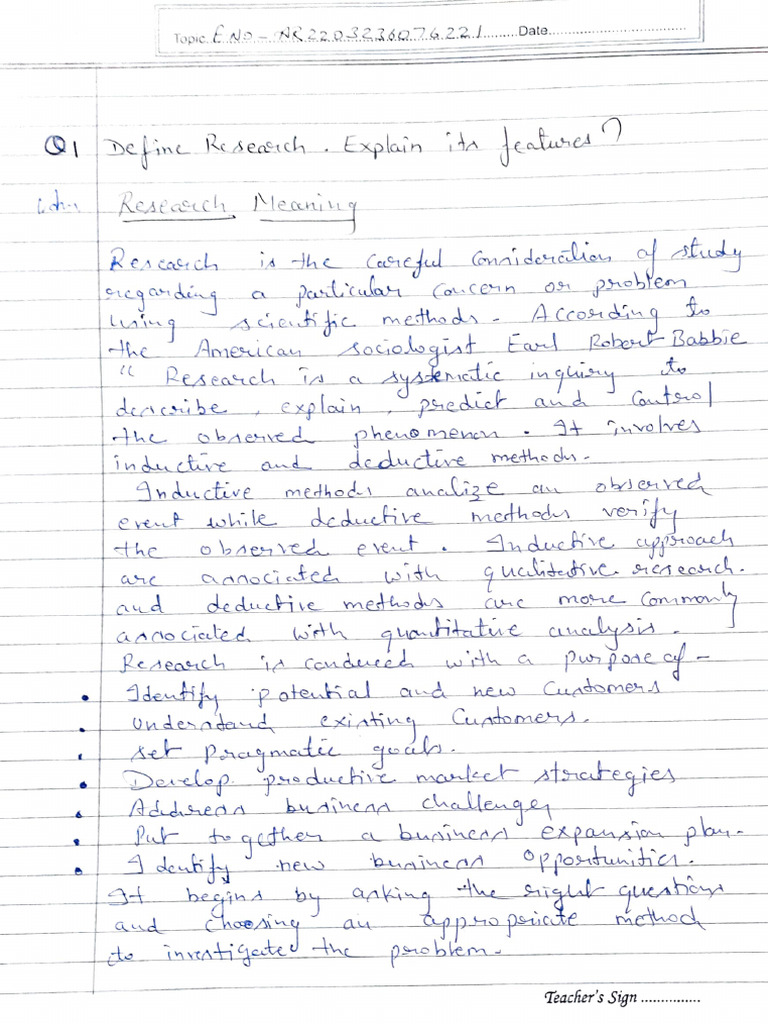 Topic. E NO - NR2203236076221.........Date................................
Q1 Define Research. Explain its features?
Research Meaning
Research is the careful consideration of study
regarding a particular concern or problem
using scientific methods. According to
the American sociologist Earl Robert Babbie
" Research is a systematic inquiry to
describe, explain, predict and control
the observed phenomenon. It involves
inductive and deductive methods.
Inductive methods analize an observed
event while deductive methods verify
the observed event. Inductive approach
are associated with qualitative research.
and deductive methods are more commonly
associated with quantitative analysis.
Research is conduced with a purpose of -
• Identify potential and new Customers
• Understand existing Customers.
• set pragmatic goals.
• Develop productive market strategies
• Address business challenges
• Put together a business expansion plan.
• Identify new business opportunities.
It begins by asking the right questions
and choosing an appropriate method
to investigate the problem.
Teacher's Sign ...............